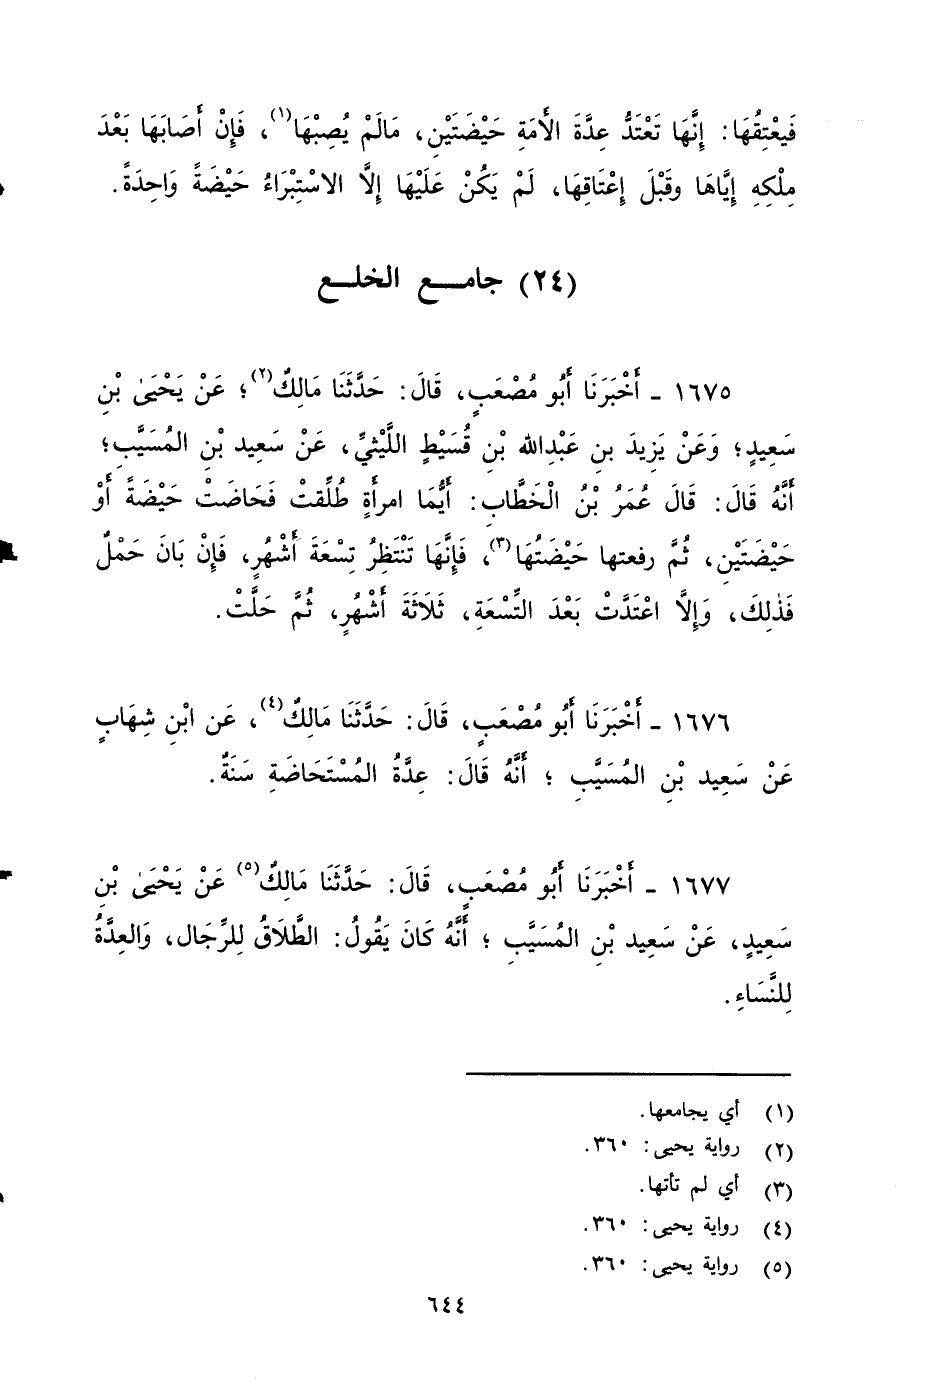 فَيعْتِقُهَا: إِنَّهَا تَعْتَدُّ عِدَّةَ الأَمَةِ حَيْضَتَيْنِ، مَالَمْ يُصِبْهَا(١)، فَإِنْ أَصَابَهَا بَعْدَ
مِلْكِهِ إِيَّاهَا وقَبْلَ إِعْتَاقِهَا، لَمْ يَكُنْ عَلَيْهَا إِلَّا الاسْتِبْرَاءُ حَيْضَةً وَاحِدَةً.
(٢٤) جامـــع الخلـــع
١٦٧٥ ـ أَخْبَرَنَا أَبُو مُصْعَبٍ، قَالَ: حَدَّثَنَا مَالِكٌ(٢)؛ عَنْ يَحْيَىٰ بْنِ
سَعِيدٍ؛ وَعَنْ يَزِيدَ بنِ عَبْدِالله بْنِ قُسَيْطٍ اللَّيْثيِّ، عَنْ سَعِيد بْنِ المُسَيَّبِ؛
أَنَّهُ قَالَ: قَالَ عُمَرُ بْنُ الْخَطَّابِ: أَيُّمَا امرأَةٍ طُلِّقتْ فَحَاضَتْ حَيْضَةً أَوْ
حَيْضَتَيْنِ، ثُمَّ رفعتها حَيْضَتُهَا(٣)، فَإِنَّهَا تَنْتَظِرُ تِسْعَةَ أَشْهُرٍ، فَإِنْ بَانَ حَمْلٌ
فَذٰلِكَ، وَإِلَّا اعْتَدَّتْ بَعْدَ التِّسْعَةِ، ثَلَاثَةَ أَشْهُرٍ، ثُمَّ حَلَّتْ.
١٦٧٦ ـ أَخْبَرَنَا أَبُو مُصْعَبٍ، قَالَ: حَدَّثَنَا مَالِكٌ(٤)، عَن ابْنِ شِهَابٍ
عَنْ سَعِيد بْنِ المُسَيَّبِ ؛ أَنَّهُ قَالَ: عِدَّةُ المُسْتَحَاضَةِ سَنَةٌ.
١٦٧٧ ـ أَخْبَرَنَا أَبُو مُصْعَبٍ، قَالَ: حَدَّثَنَا مَالِكٌ(٥) عَنْ يَحْيَىٰ بْنِ
سَعِيدٍ، عَنْ سَعِيد بْنِ المُسَيَّبِ ؛ أَنَّهُ كَانَ يَقُولُ: الطَّلَاقُ لِلرِّجَال، وَالعِدَّةُ
لِلنَّسَاءِ.
(١) أي يجامعها.
(٢) رواية يحيى: ٣٦٠.
(٣) أي لم تأتها.
(٤) رواية يحيى: ٣٦٠.
(٥) رواية يحيى: ٣٦٠.
٦٤٤